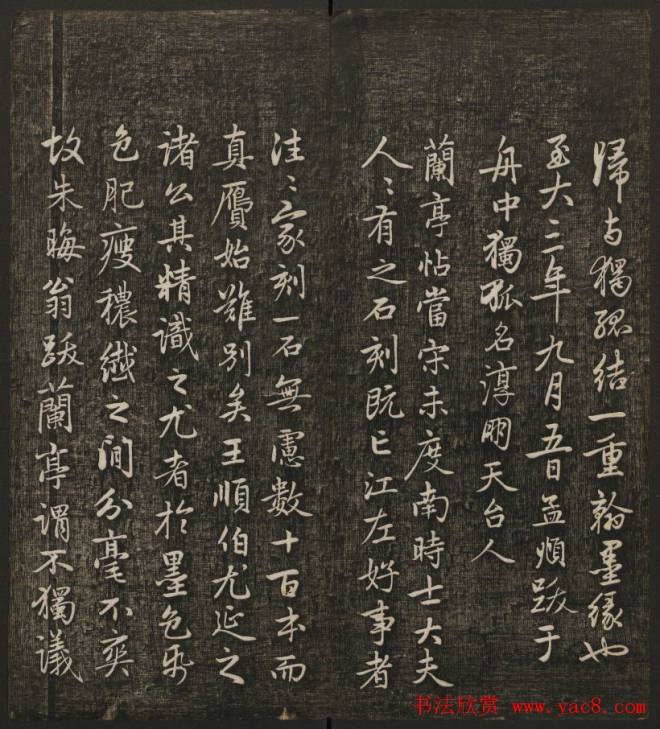 歸与獨孤結一重翰墨緣也
至大三年九月五日孟頫跋于
舟中獨孤名淳朋天台人
蘭亭帖當宋未度南時士大夫
人〻有之石刻既亡江左好事者
往〻家刻一石無慮數十百本而
真贋始難別矣王順伯尤延之
諸公其精識之尤者於墨色帋
色肥瘦穠纖之間分毫不爽
故朱晦翁跋蘭亭謂不獨議
书法欣赏 www.yac8.com